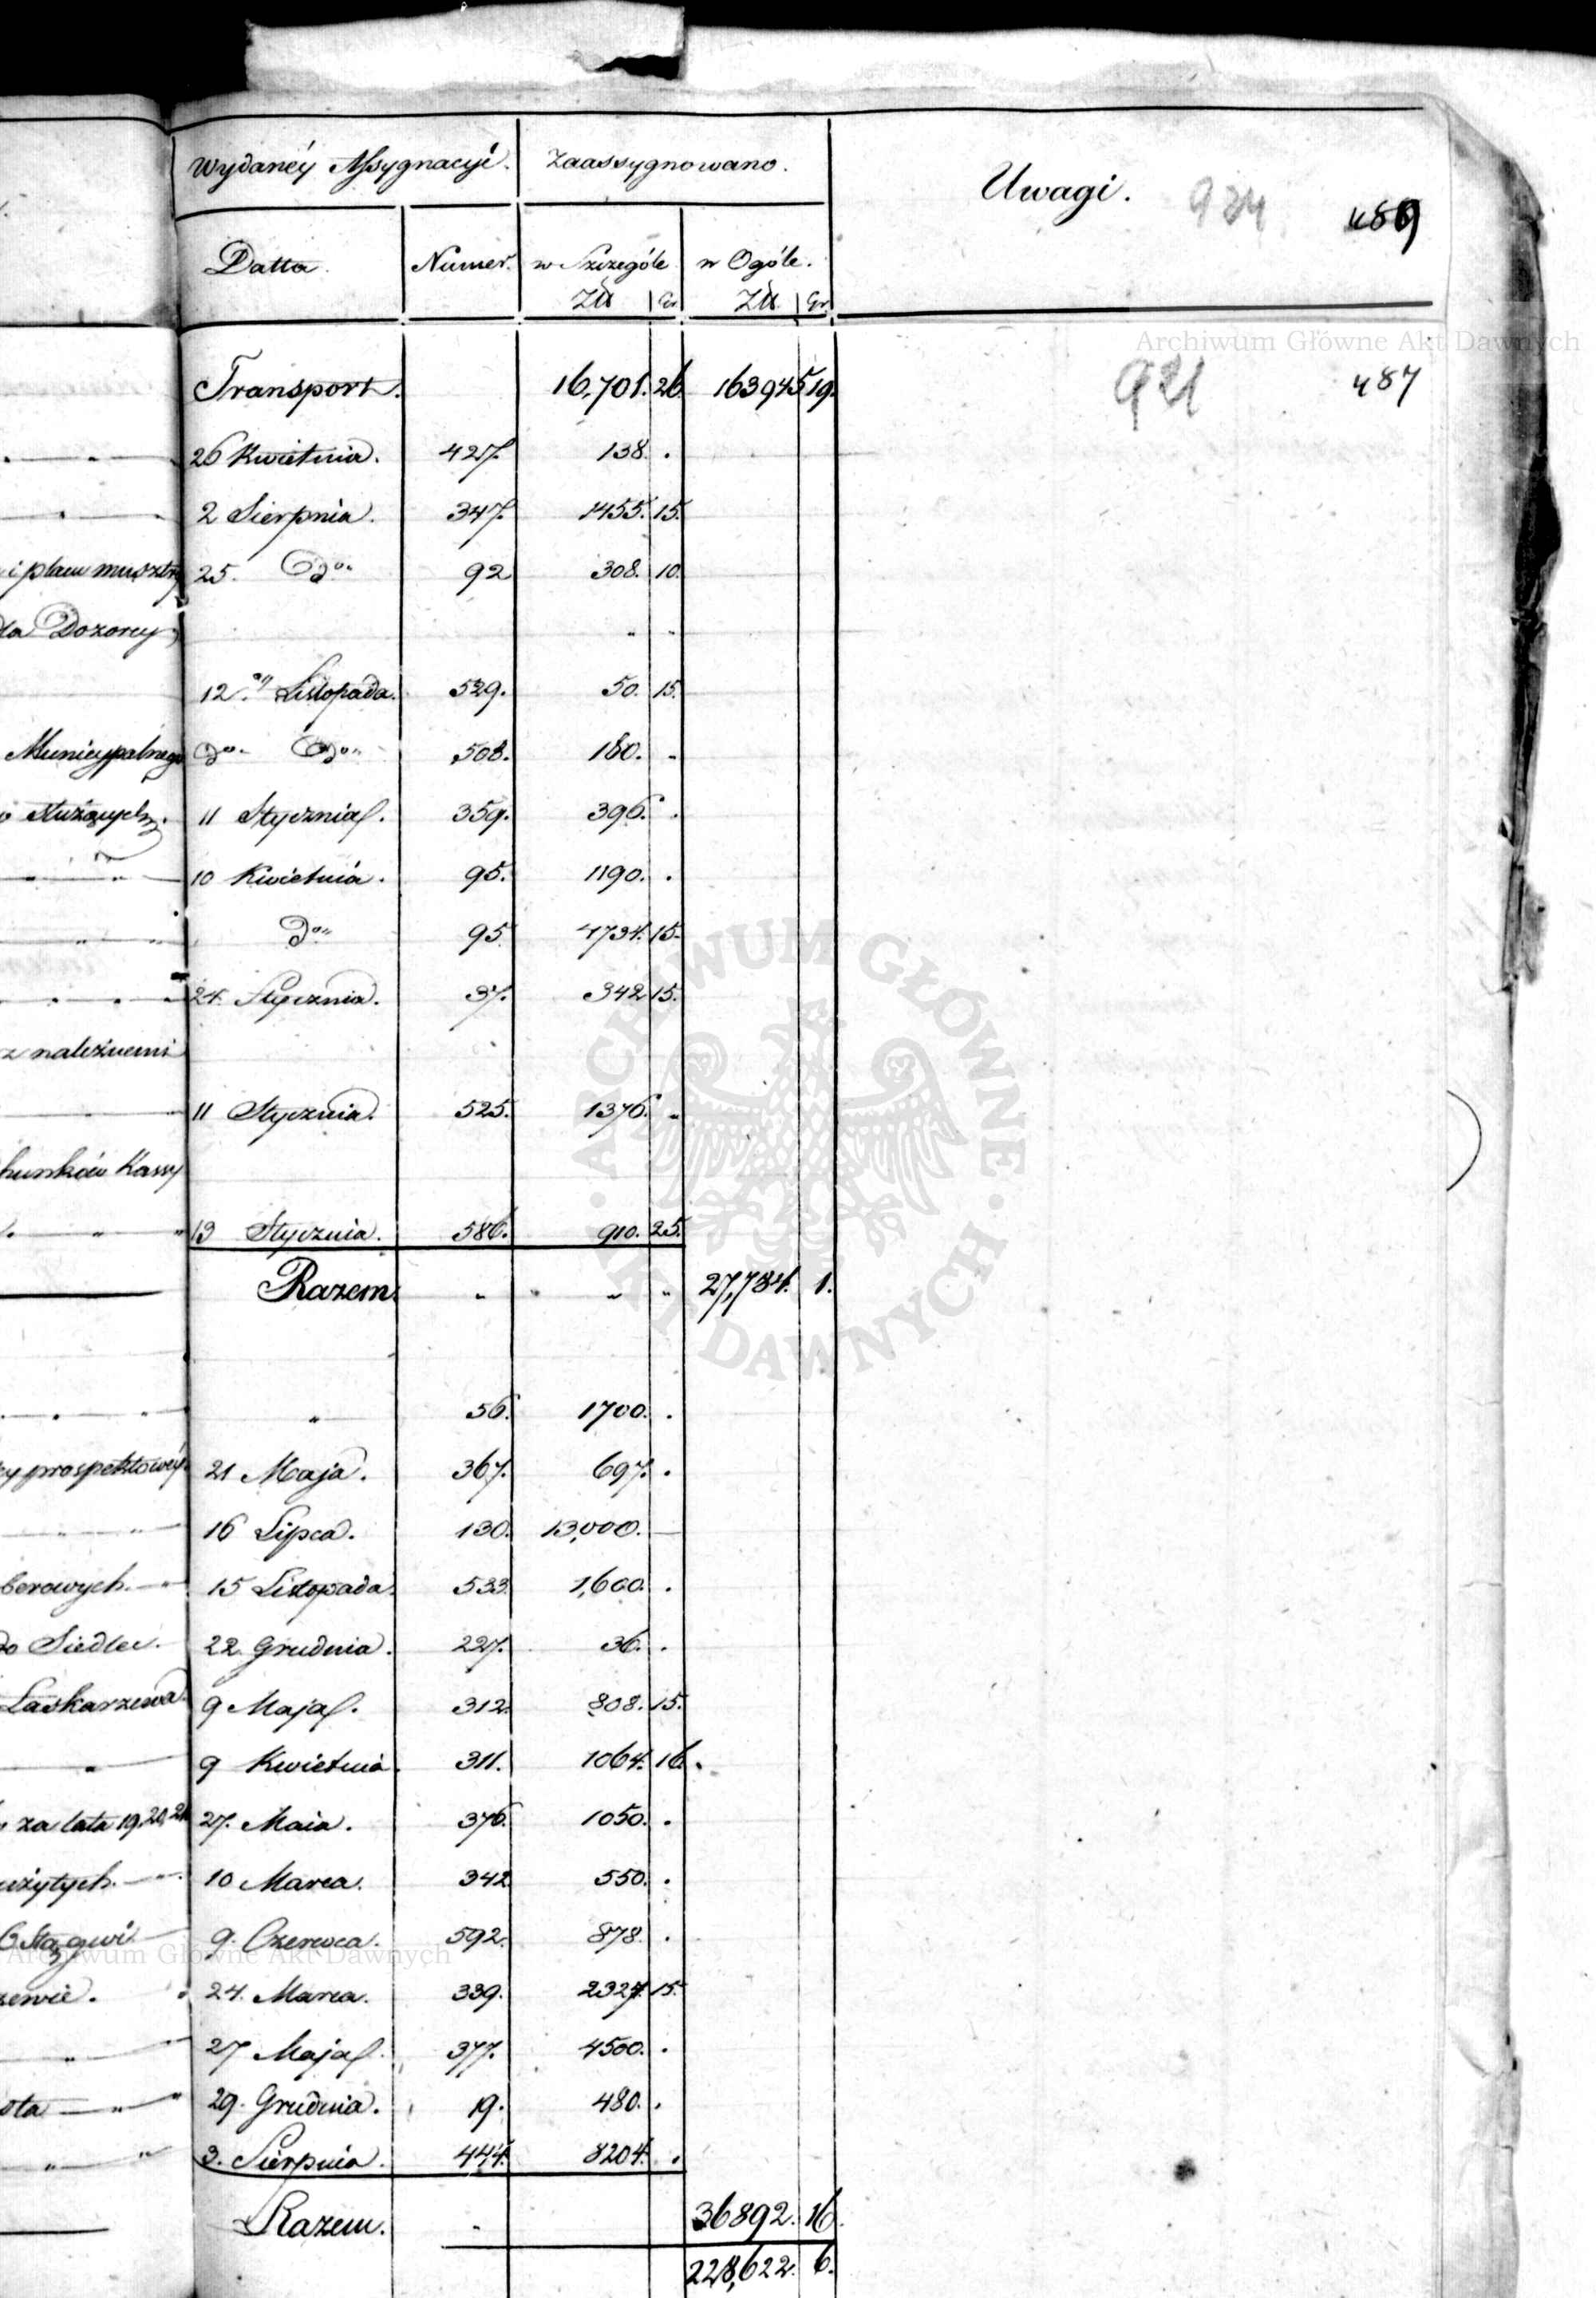 Wydanéy Assygnacyi. Zaassygnowano. Uwagi. 924 489
Datta. Numer. w Szczególe w Ogóle.
Zł Gr Zł Gr
Transport. 16,701. 26. 163945 19. 921 487
26 Kwietnia. 427. 138. .
2 Sierpnia. 347. 1455. 15.
i placu musztry 25. do 92 308. 10.
la Dozorcy " "
12. Listopada. 529. 50. 15.
Municypalnego do do 508. 180. "
służących 11 Stycznia. 359. 396. .
10 Kwietnia. 95. 1190. .
" " do 95 4734. 15.
24. Stycznia. 37. 342 15.
z należnemi
11 Stycznia. 525. 1376. "
hunków Kassy
" " 13 Stycznia. 586. 910. 25.
Razem " " " 27,784. 1.
" 56. 1700. .
y prospektowéy 21 Maja. 367. 697. .
16 Lipca. 130. 13,000. —
berowych. 15 Listopada. 533 1,600. .
do Siedlec. 22. Grudnia. 227. 36. .
Laskarzewa 9 Maja. 312. 808. 15.
" 9 Kwietnia. 311. 1064. 16.
za lata 19, 20, 21 27. Maia. 376. 1050. .
użytych. 10 Marca. 342 550. .
9. Czerwca. 592. 878. .
zewie. 24. Marca. 339. 2327. 15.
" 27 Maja. 377. 4500. .
ota " 29. Grudnia. 19. 480. .
" " 3. Sierpnia. 444. 8204. .
Razem. " 36892. 16.
228,622. 6.
Archiwum Główne Akt Dawnych
ARCHIWUM GŁÓWNE AKT DAWNYCH
Archiwum Główne Akt Dawnych